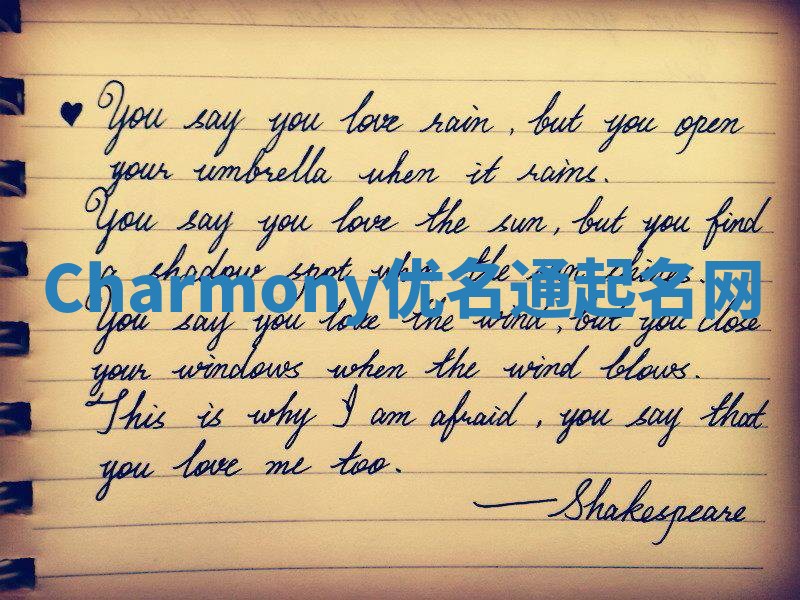 ♥ You say you love rain, but you open
your umbrella when it rains.
You say you love the sun, but you find
a shadow spot when the sun shines.
Charmony优名通起名网
You say you love the wind, but you close
your windows when the wind blows.
This is why I am afraid, you say that
you love me too.
—Shakespeare